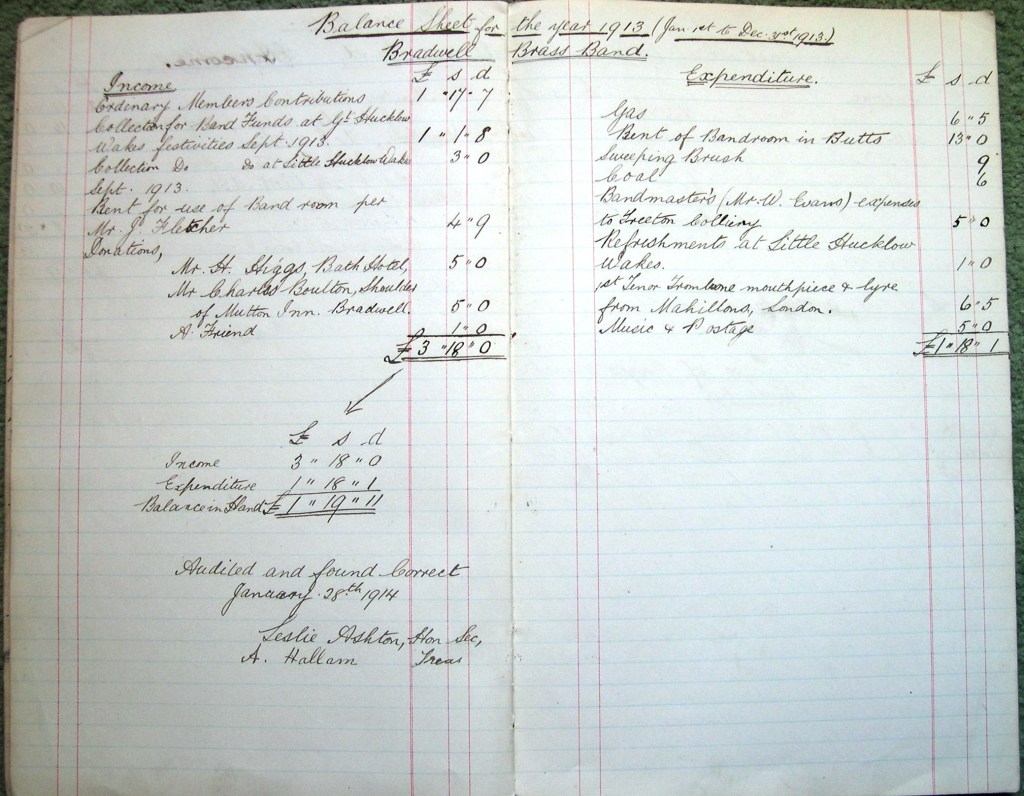 Balance Sheet for the year 1913 (Jan. 1st to Dec. 31st 1913.)
Bradwell Brass Band.
Income £ s d
Ordinary Members Contributions 1 " 17 " 7
Collection for Band Funds at Gt. Hucklow
Wakes festivities Sept. 1913. 1 " 1 " 8
Collection Do Do at Little Hucklow Wakes 3 " 0
Sept. 1913.
Rent for use of Band room per
Mr. J. Fletcher 4 " 9
Donations,
Mr. H. Higgs, Bath Hotel, 5 " 0
Mr Charles Boulton, Shoulder
of Mutton Inn. Bradwell. 5 " 0
A. Friend 1 " 0
£ 3 " 18 " 0
£ s d
Income 3 " 18 " 0
Expenditure 1 " 18 " 1
Balance in Hand £ 1 " 19 " 11
Audited and found Correct
January 28th 1914
Leslie Ashton, Hon Sec,
A. Hallam Treas
Expenditure. £ s d
Gas 6 " 5
Rent of Bandroom in Butts 13 " 0
Sweeping Brush 9
Coal 6
Bandmaster's (Mr. W. Evans) expenses
to Treeton Colliery 5 " 0
Refreshments at Little Hucklow
Wakes. 1 " 0
1st Tenor Trombone mouthpiece & lyre
from Mahillons, London. 6 " 5
Music & Postage 5 " 0
£ 1 " 18 " 1